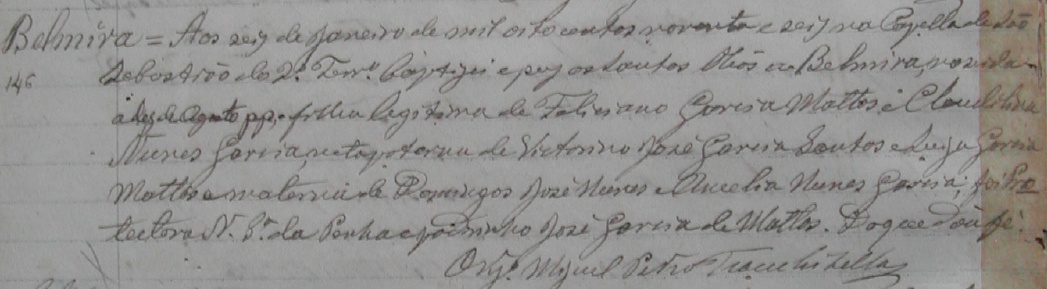 Belmira = Aos seis de Janeiro de mil oito centos noventa e seis na Capella de São
146 Sebastião do 2º Terrº baptizei e puz os Santos Oleos a Belmira, nascida
a dez de Agosto pp., filha legitima de Feliciano Garcia Mattos e Claudilina
Nunes Garcia, neta paterna de Victorino José Garcia Santos e Luiza Garcia
Mattos e materna de Domingos José Nunes e Aurelia Nunes Garcia; foi Pro
tectora N. Sª. da Penha e padrinho José Garcia de Mattos. Do que dou fé.
O Vigº Miguel Pedro